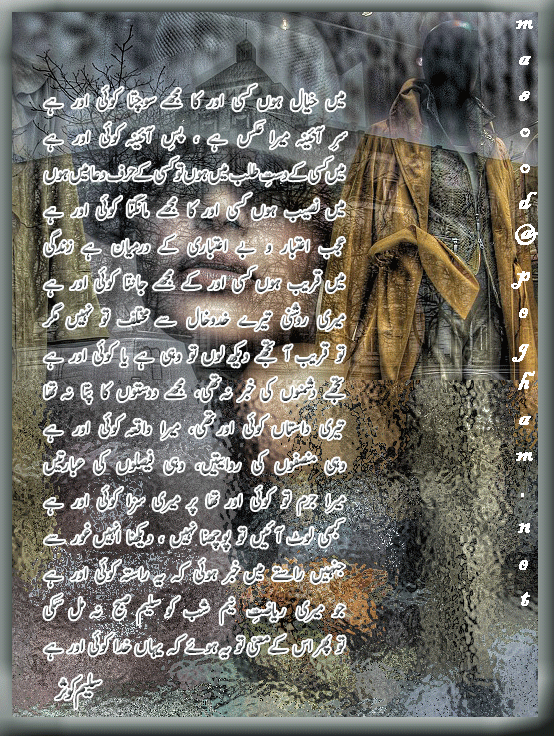 میں خیال ہوں کسی اور کا مجھے سوچتا کوئی اور ہے
سرِ آئینہ میرا عکس ہے ، پسِ آئینہ کوئی اور ہے
میں کسی کے دستِ طلب میں ہوں تو کسی کے حرفِ دعا میں ہوں
میں نصیب ہوں کسی اور کا مجھے مانگتا کوئی اور ہے
عجب اعتبار و بے اعتباری کے درمیان ہے زندگی
میں قریب ہوں کسی اور کے مجھے جانتا کوئی اور ہے
میری روشنی تیرے خدوخال سے مختلف تو نہیں مگر
تو قریب آ تجھے دیکھ لوں تو وہی ہے یا کوئی اور ہے
تجھے دشمنوں کی خبر نہ تھی، مجھے دوستوں کا پتا نہ تھا
تیری داستاں کوئی اور تھی، میرا واقعہ کوئی اور ہے
وہی منصفوں کی روایتیں، وہی فیصلوں کی عبارتیں
میرا جرم تو کوئی اور تھا پر میری سزا کوئی اور ہے
کبھی لوٹ آئیں تو پوچھنا نہیں ، دیکھنا انہیں غور سے
جنہیں راستے میں خبر ہوئی کہ یہ راستہ کوئی اور ہے
جو میری ریاضتِ نیم شب کو سلیم صبح نہ مل سکی
تو پھر اس کے معنی تو یہ ہوئے کہ یہاں خدا کوئی اور ہے
سلیم کوثر
masood@pegham.net